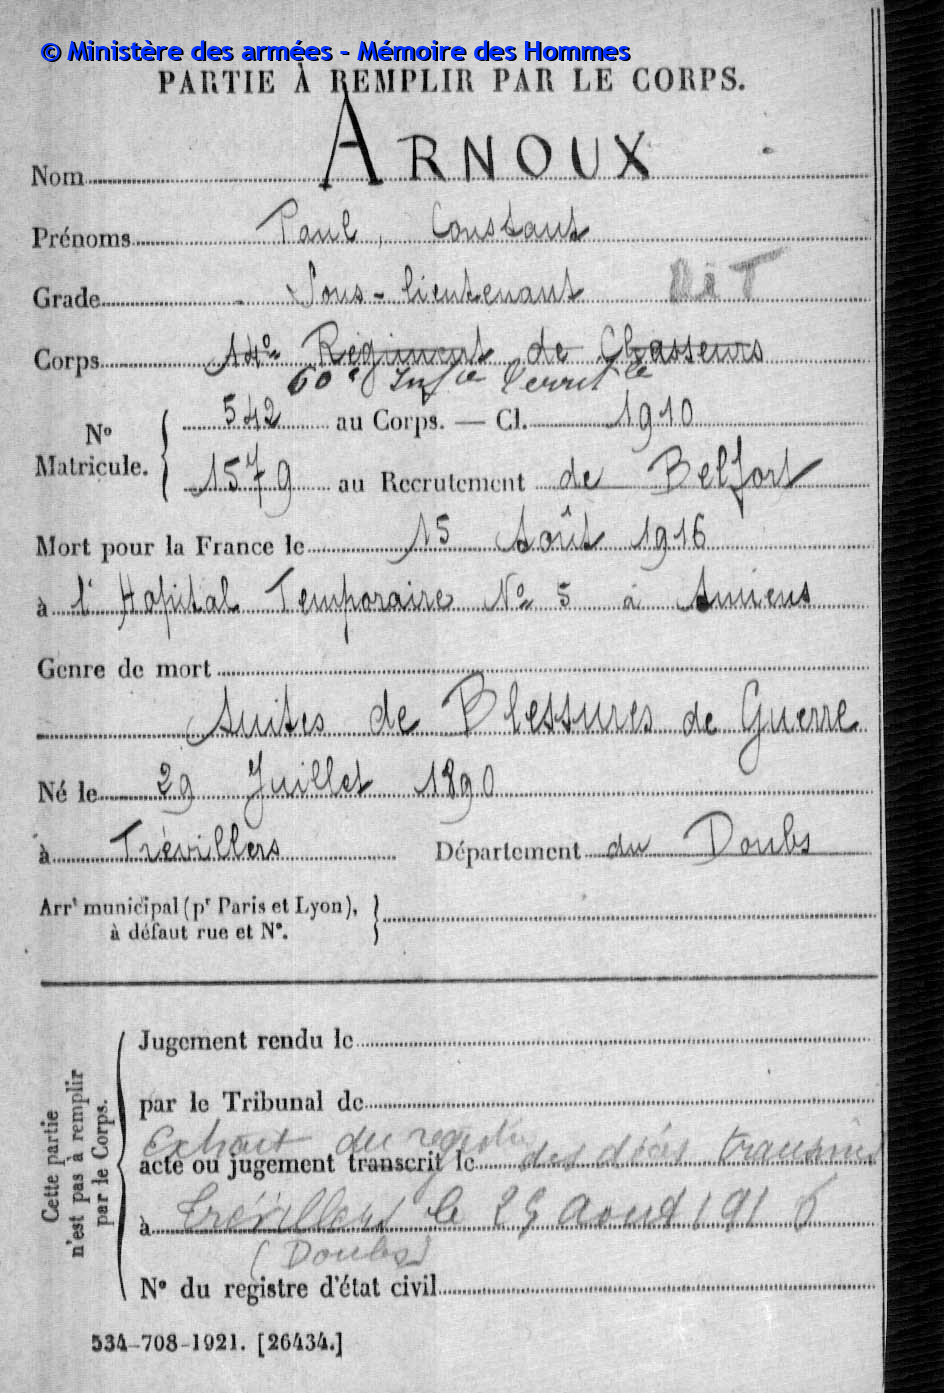 © Ministère des armées - Mémoire des Hommes
PARTIE À REMPLIR PAR LE CORPS.
Nom ARNOUX
Prénoms Paul, Constant
Grade Sous-lieutenant
Corps 14e Régiment de Chasseurs
60e Infie Territle
542 au Corps. — Cl. 1910
N° Matricule.
1579 au Recrutement de Belfort
Mort pour la France le 15 Août 1916
à l'Hopital Temporaire N° 5 à Amiens
Genre de mort
Suites de Blessures de Guerre
Né le 29 Juillet 1890
à Trévillers Département du Doubs
Arrt municipal (pr Paris et Lyon),
à défaut rue et N°.
Cette partie n'est pas à remplir par le Corps.
Jugement rendu le
par le Tribunal de
Extrait du registre des décès transmis
acte ou jugement transcrit le
à Trévillers le 29 Aout 1916
(Doubs)
N° du registre d'état civil
534-708-1921. [26434.]